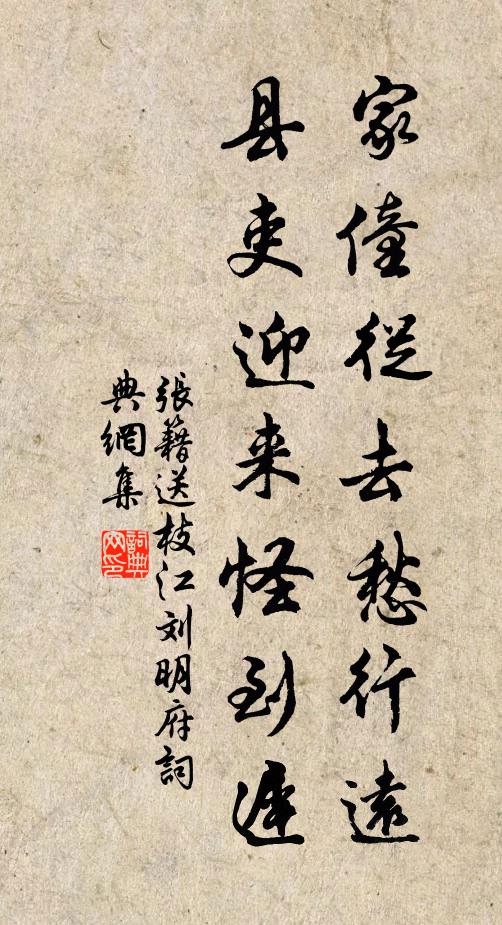 家僮從去愁行遠
县吏迎来怪到遲
張籍送枝江刘明府詞
典網集
詞典
网印